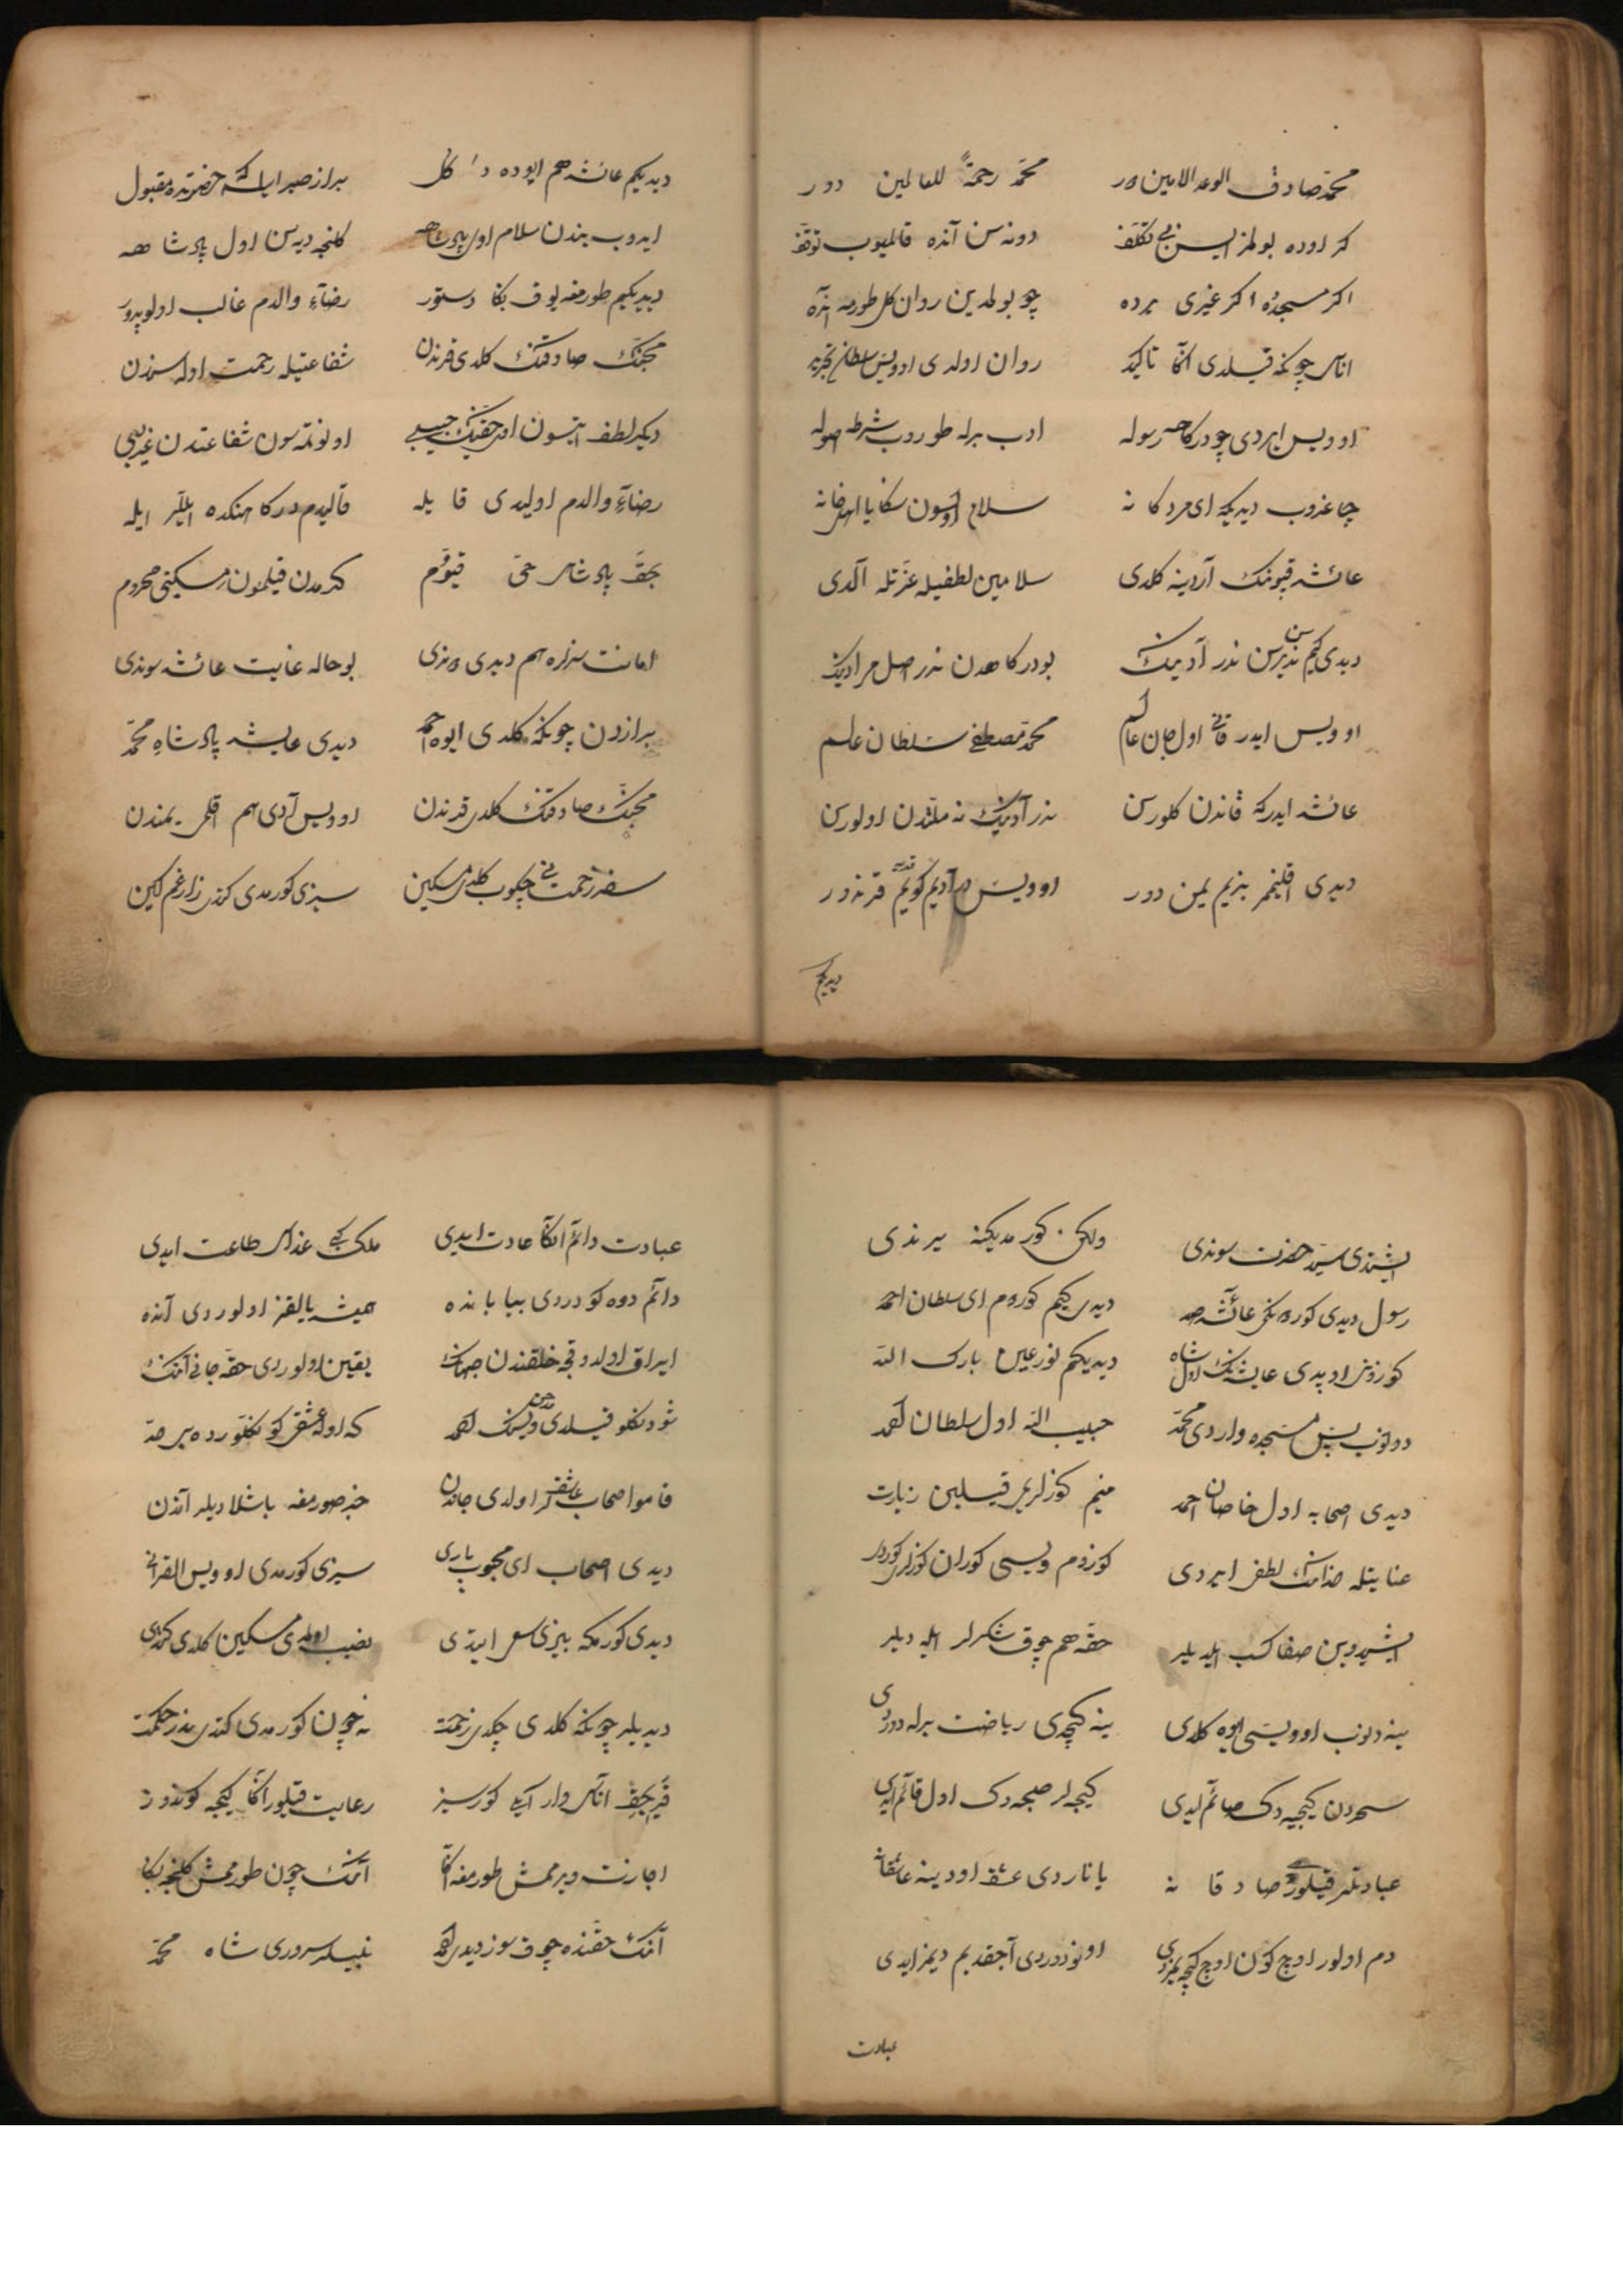 محمد صادق الوعد الامین در محمد رحمة للعالمین دور
کر اوده بولمز ایسن بی تکلف دونه سن آنده قالمیوب توقف
اکر مسجده اکر غیری یرده چو بولمدین روان کل طورمه انده
اناسی چونکه قیلدی اکا تاکید روان اولدی اوویس سلطان تجرید
اوویس ایردی چو درکاه رسوله ادب برله طوروب شرطه اصوله
چاغروب دیدیکه ای مردکانه سلام اولسون سکا یا اهل خانه
عائشه قپونک آردینه کلدی سلامین لطفیله عزتله آلدی
دیدی کیم سن ندرسن ندر آدینک بو درکاهدن ندر اصل مرادینک
اوویس ایدر قانی اول جان عالم محمد مصطفی سلطان عالم
عائشه ایدر که قاندن کلورسن ندر آدینک نه ملتدن اولورسن
دیدی اقلیمم بنیم یمن دور اوویس در آدیم کویم قرندور
دیدیکم
دیدیکم عائشه هم ایوده دکل براز صبر ایله که حضرتده مقبول
ایدوب بندن سلام اول پادشاهه کلنجه دیه سن اول پادشاهه
دیدیکیم طورمغه یوق بکا دستور رضاء والدم غالب اولوپدور
محبنک صادقنک کلدی قرندن شفاعتیله رحمت اوله سزدن
دیکه لطف ایتسون اول حقنک حبیبی اونوتمه سون شفاعتدن غریبی
رضاء والدم اولیدی قایله قالیدم درکاهنکده ایلر ایله
بحق پادشاه حی قیوم کرمدن قیلمسون مسکینی محروم
امانت سزه هم دیدی دوندی بو حاله غایت عائشه سوندی
برازدن چونکه کلدی ایوه احمد دیدی عایشه پادشاه محمد
محبنک صادقنک کلدی قرندن اوویس آدی هم اقلیمی یمندن
سفر زحمتنی چکوب کلدی مسکین سیزی کورمدی کتدی زار غمکین
ایشتدی سید حضرت سوندی ولکن کورمدیکنه یرندی
رسول دیدی کوردکمی عائشه صد دیدی کیم کوردم ای سلطان احمد
کوزوزن اوپدی عایشه نک اول شاه دیدیکم نور عین بارک الله
دونوب پس مسجده واردی محمد حبیب الله اول سلطان احمد
دیدی اصحابه اول خاصان احمد منم کوزلریمی قیلین زیارت
عنایتله خدانک لطف ایردی کوزوم ویسی کوران کوزلری کوردی
ایشیدوبن صفا کسب ایلدیلر حقه هم چوق شکرلر ایله دیلر
ینه دونوب اوویسی ایوه کلدی ینه کیچدی ریاضت برله دوردی
سحردن کیجیه دک صائم ایدی کیجه لر صبحه دک اول قائم ایدی
عبادتلر قیلوردی صادقانه یاناردی عشق اودینه عاشقانه
دم اولور اوج کون اوج کیجه یمزدی اونودردی آجقدیم دیمز ایدی
عبادت
عبادت دائم اکا عادت ایدی ملک کبی غذاسی طاعت ایدی
دائم دوه کودردی بیاباندە همیشه یالقز اولوردی آنده
ایراق اولدوقچه خلقندن جهانک یقین اولوردی حقه جانی آنک
شو دکلو قیلدی ویسک احمد که اوله عشقی کوکلقورده بیر صد
قامو اصحاب عاشق اولدی جاندن خبر صورمغه باشلادیلر آندن
دیدی اصحاب ای محبوب باری سیزی کورمدی اوویس القرانی
دیدی کورمکه بیزی سعی ایتدی نصیب اولمدی مسکین کلدی کتدی
دیدیلر چونکه کلدی چکدی زحمت نه چون کورمدی کتدی ندر حکمت
قریجق اناسی وار ایکی کورسیز رعایت قیلور اکا کیجه کوندوز
اجازت ویرممش طورمغه اکا آنک چون طورممش کلنجه بکا
آنک حقنده چوق سوز دیدی احمد نبیلر سروری شاه محمد